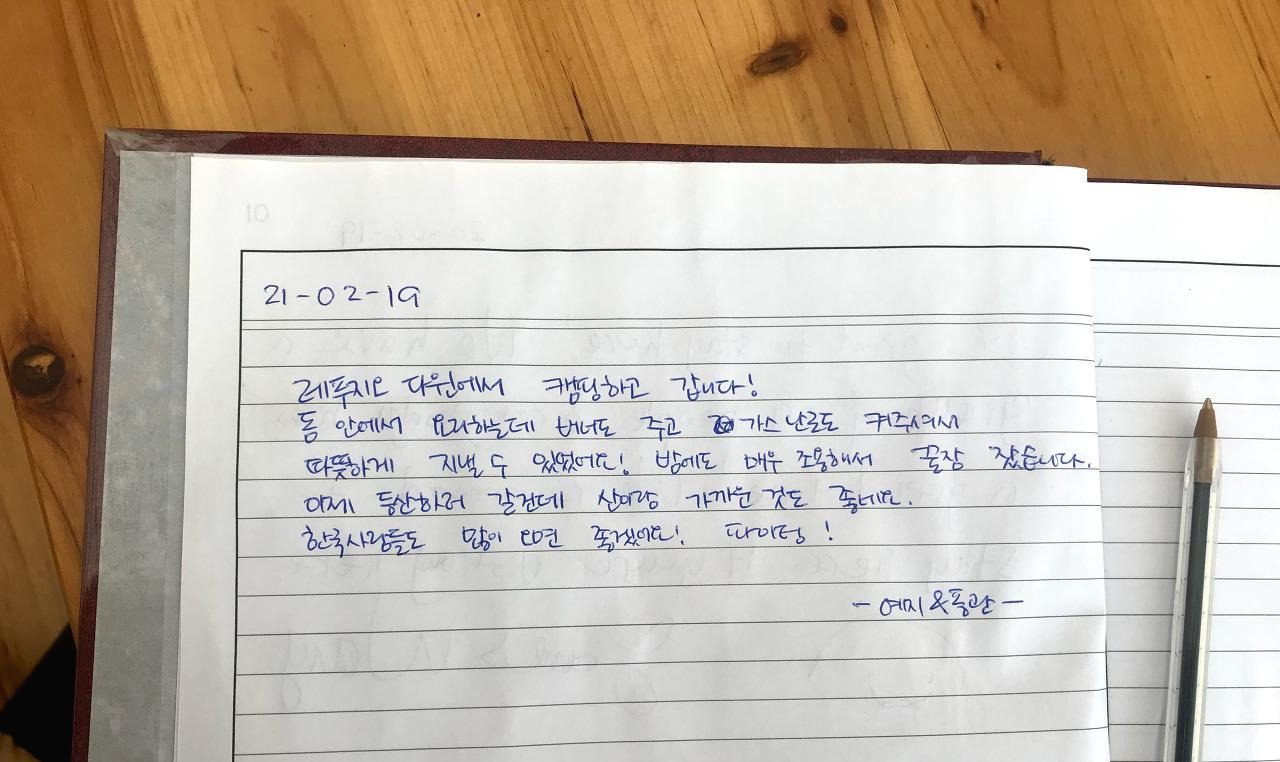 21-02-19
레푸지오 다원에서 캠핑하고 갑니다!
돔 안에서 요리하는데 버너도 주고 가스난로도 켜주셔서
따뜻하게 지낼 수 있었어요! 밤에도 매우 조용해서 꿀잠 잤습니다.
이제 등산하러 갈건데 산이랑 가까운 것도 좋네요.
한국사람들도 많이 오면 좋겠어요! 파이팅!
- 예지 &